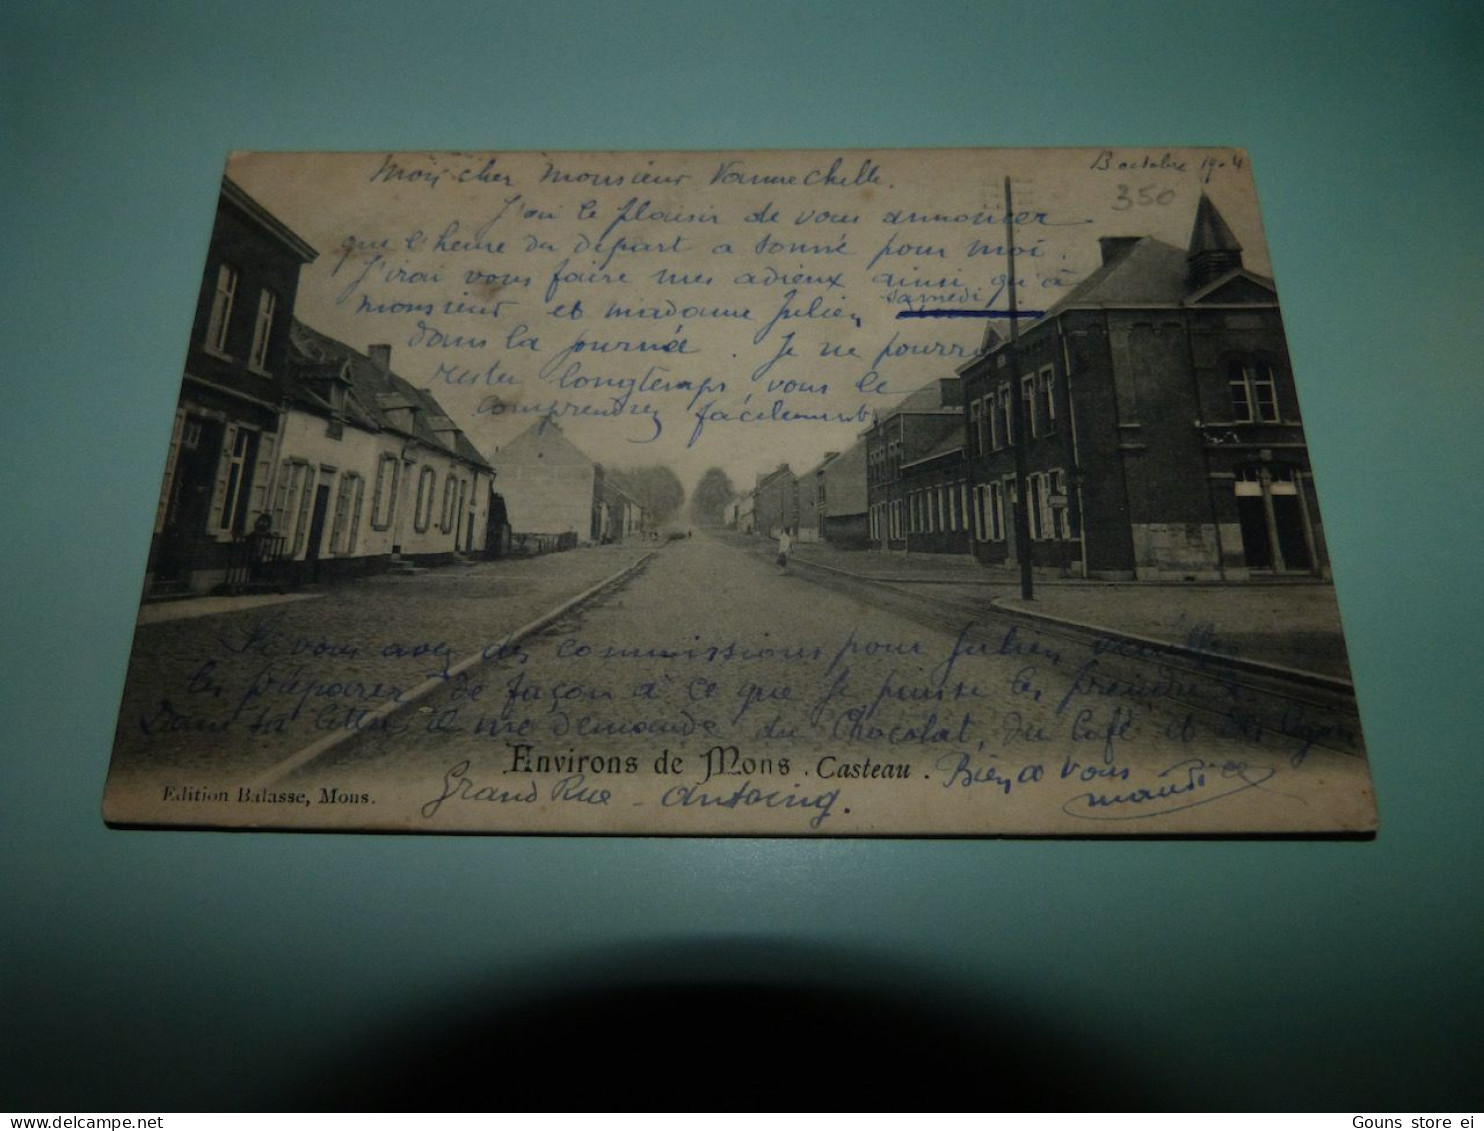 octobre 1904
350
Mon cher Monsieur Vannechelle.
J'ai le plaisir de vous annoncer
que l'heure du départ a sonné pour moi.
J'irai vous faire mes adieux ainsi qu'à
Monsieur et madame Julien samedi
dans la journée. Je ne pourrai
rester longtemps, vous le
comprendrez facilement
Si vous avez des commissions pour Julien, veuillez
les préparer de façon à ce que je puisse les prendre
Dans sa lettre il me demande du Chocolat, du Café et des
Environs de Mons. Casteau. Bien à vous
Edition Balasse, Mons.
Grand Rue - Antoing.